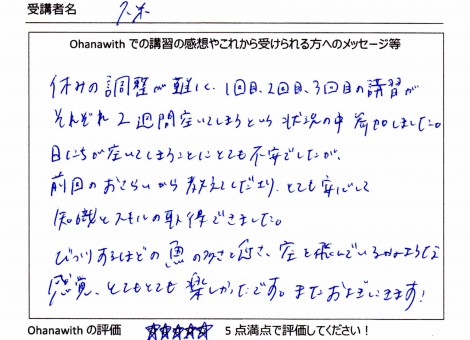 受講者名
Ohanawith での講習の感想やこれから受けられる方へのメッセージ等
休みの調整が難しく、1回目、2回目、3回目の講習が
それぞれ2週間空いてしまうという状況の中 参加しました。
日にちが空いてしまうことにとても不安でしたが、
前回のおさらいから教えてくださり、とても安心して
知識とスキルの取得できました。
びっくりするほどの魚の多さと近さ、空を飛んでいるかのような
感覚、とてもとても楽しかったです。またおよぎにきます!
Ohanawith の評価 ☆☆☆☆☆ 5 点満点で評価してください!